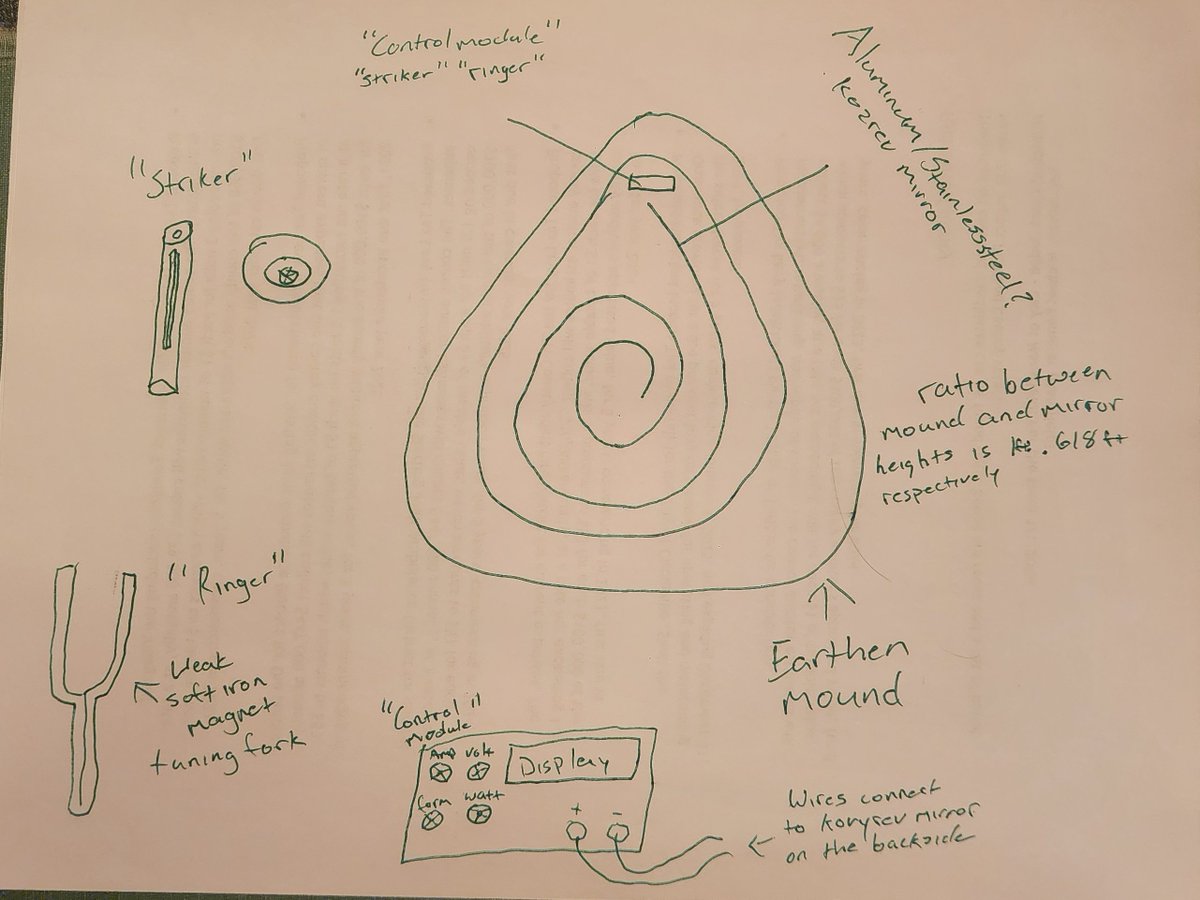 "Control module"
"striker" "ringer"
Aluminum/Stainless steel?
kozrev mirror
"Striker"
ratio between
mound and mirror
heights is .618 ft
respectively
"Ringer"
weak
soft iron
magnet
tuning fork
Earthen
mound
"Control"
module
Amp Volt
Display
form watt
+ -
Wires connect
to konyrev mirror
on the backside